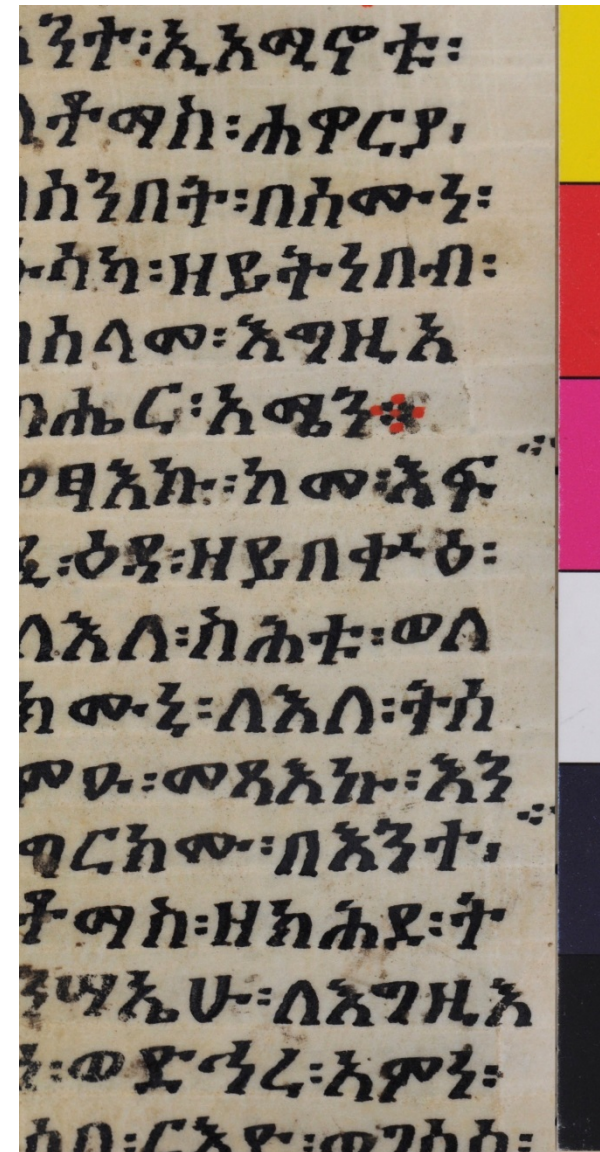 ንተ፡ኢአሚኖቱ፡
ቶማስ፡ሐዋርያ፡
ሰንበት፡በሰሙን፡
ሳካ፡ዘይትነበብ፡
ሰላመ፡እግዚአ
ብሔር፡አሜን፨
መፃእኩ፡ከመ፡እፍ
ዕዳ፡ዘይበቍዕ፡
ለእለ፡ስሕቱ፡ወለ
ክሙኒ፡ለእለ፡ትሰ
ምዑ፡መጻእኩ፡እን
ግርክሙ፡በእንተ፡
ቶማስ፡ዘክሕደ፡ት
ንሣኤሁ፡ለእግዚእ
ወድኅረ፡አምነ፡
ሶበ፡ርእዮ፡ወገሰሰ፡